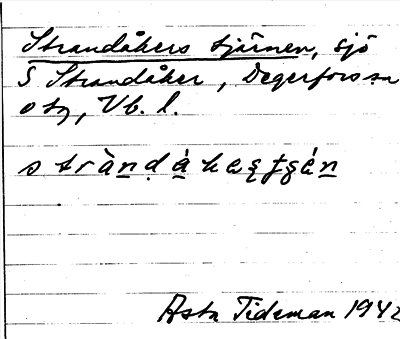 Strandåkers tjärnen, sjö
S Strandåker, Degerfors sn
o tg, Vb. l.
Asta Tideman 1942